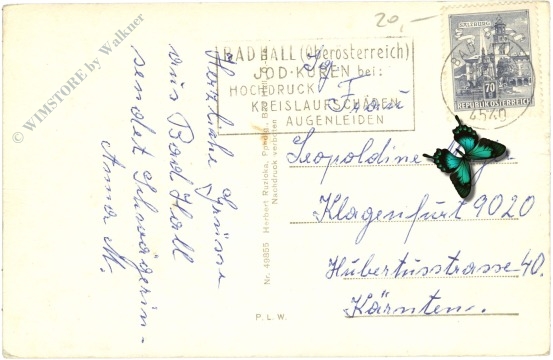 © WIMSTORE by Walkner
20,-
SALZBURG
70
REPUBLIK ÖSTERREICH
BAD
4540
BAD HALL (Oberösterreich)
JOD-KUREN bei:
HOCHDRUCK
KREISLAUFSCHÄDEN
AUGENLEIDEN
Herzliche Grüsse
aus Bad Hall
sendet Schwägerin-
Anna M.
Nr. 49855 Herbert Ruzicka,
Nachdruck verboten
P. L. W.
Sg.
Frau
Leopoldine
Klagenfurt 9020
Hubertusstrasse 40.
Kärnten.